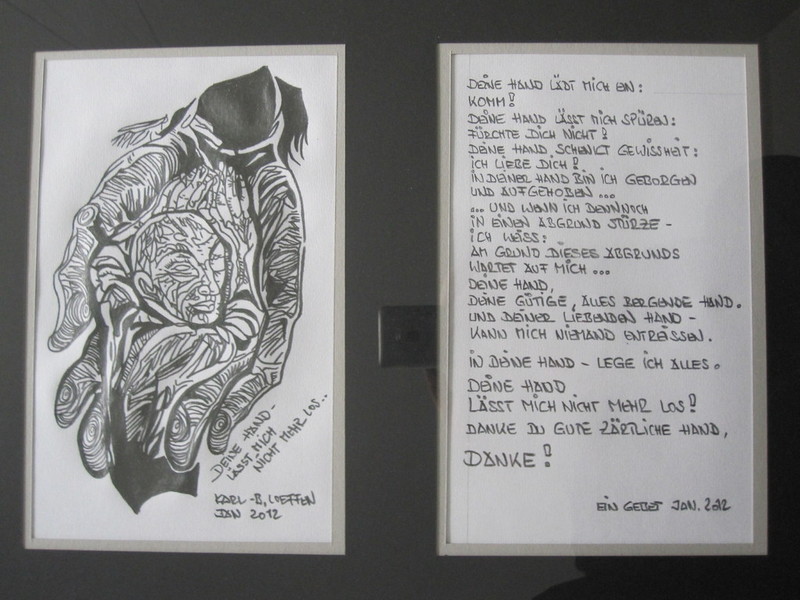 DEINE HAND-
LÄSST MICH
NICHT MEHR LOS..
KARL-B, LOEFFEN
JAN 2012
DEINE HAND LÄDT MICH EIN:
KOMM!
DEINE HAND LÄSST MICH SPÜREN:
FÜRCHTE DICH NICHT!
DEINE HAND SCHENKT GEWISSHEIT:
ICH LIEBE DICH!
IN DEINER HAND BIN ICH GEBORGEN
UND AUFGEHOBEN ...
... UND WENN ICH DENNNOCH
IN EINEN ABGRUND STÜRZE -
ICH WEISS:
AM GRUND DIESES ABGRUNDS
WARTET AUF MICH ...
DEINE HAND,
DEINE GÜTIGE, ALLES BERGENDE HAND.
UND DEINER LIEBENDEN HAND -
KANN MICH NIEMAND ENTREISSEN.
IN DEINE HAND - LEGE ICH ALLES.
DEINE HAND
LÄSST MICH NICHT MEHR LOS!
DANKE DU GUTE ZÄRTLICHE HAND,
DANKE!
EIN GEBET JAN. 2012